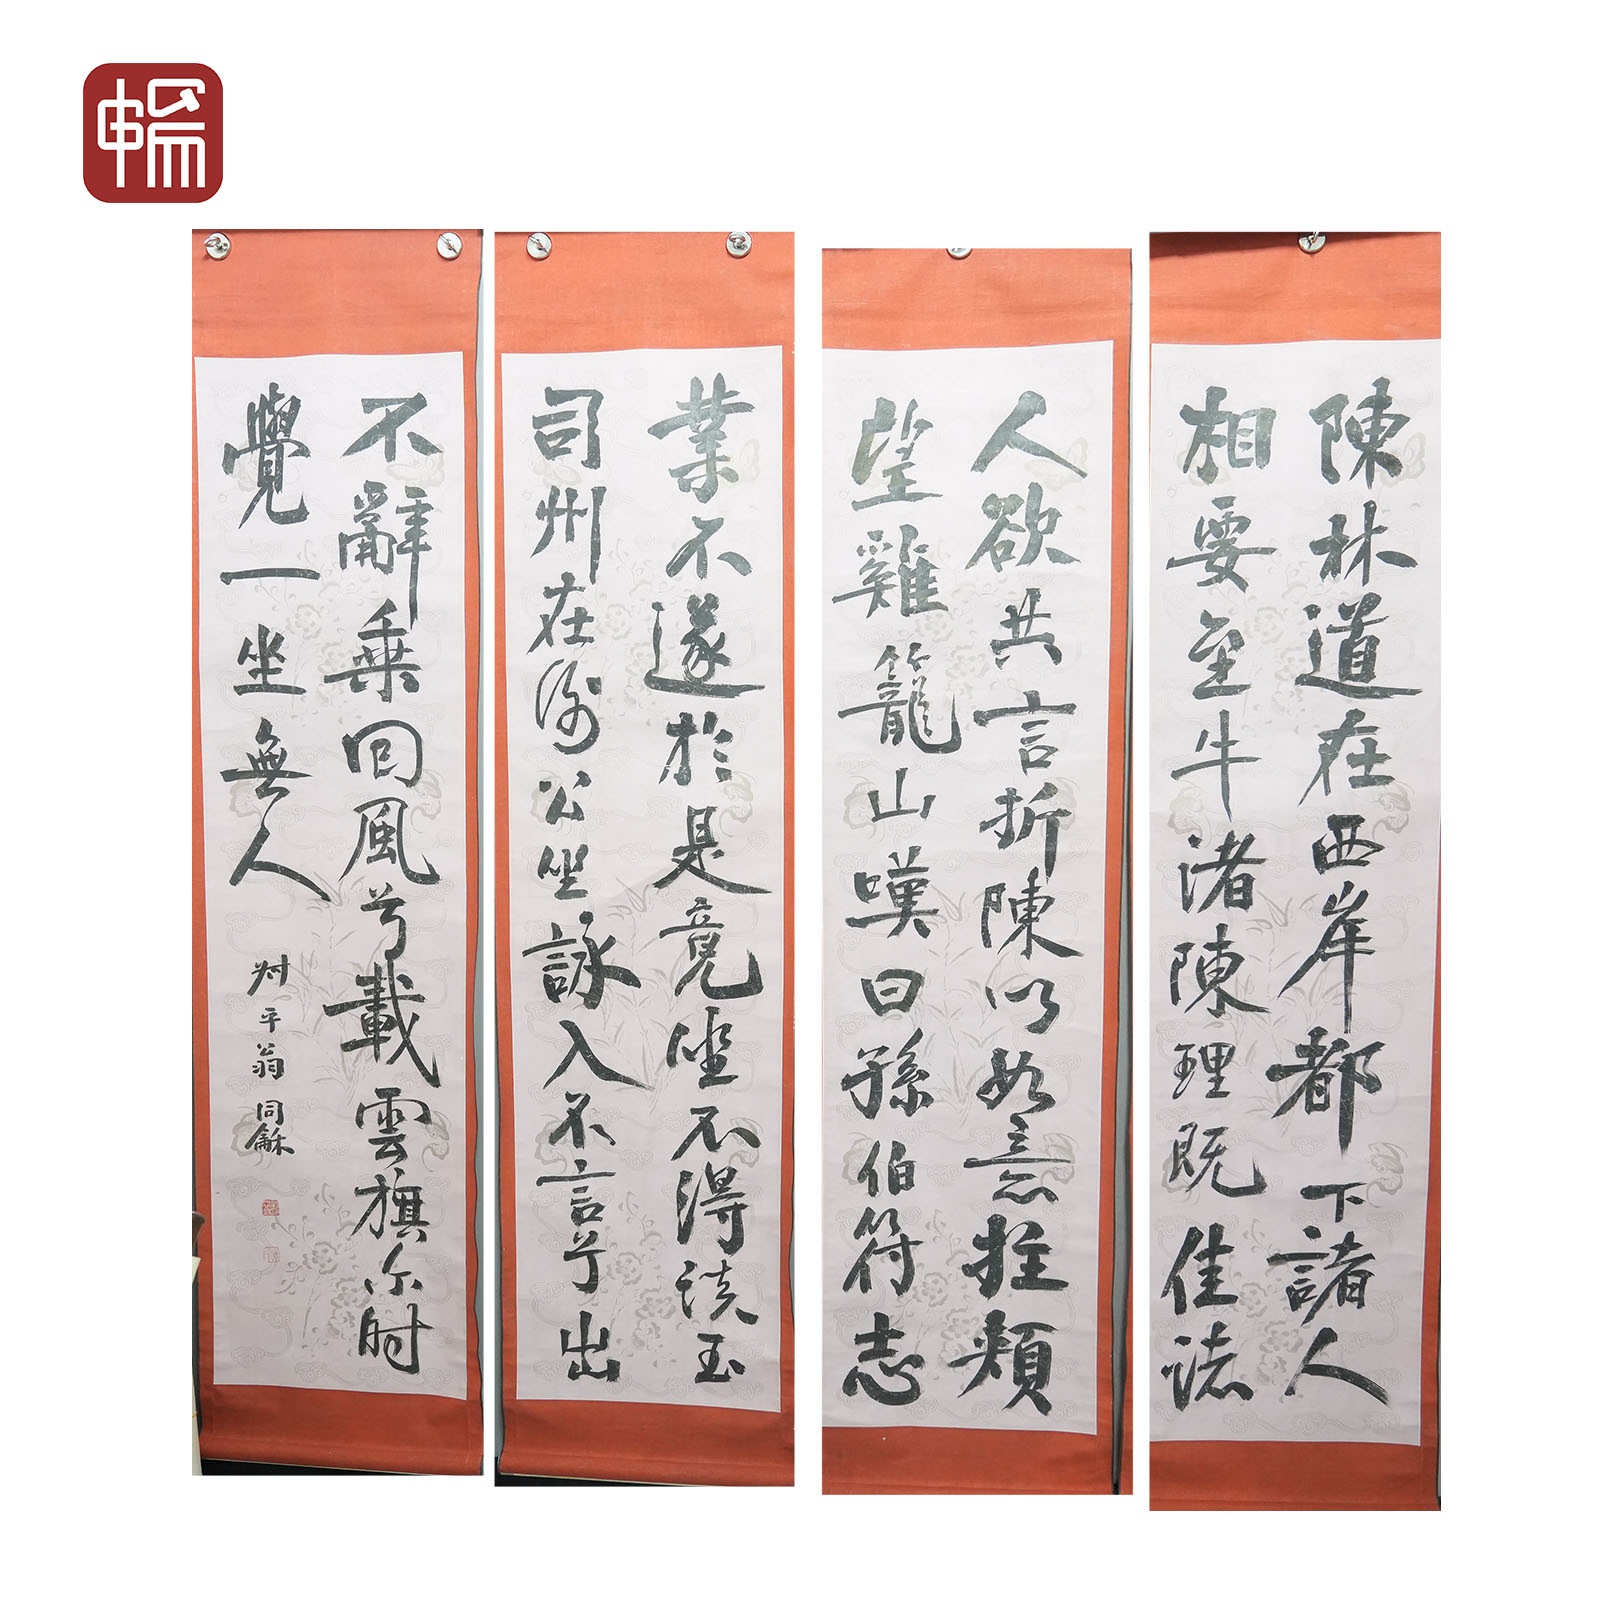 陳林道在西岸都下諸人
相要至牛渚陳理既佳諸
人欲共言折陳以如意拄頰
望雞籠山嘆曰孫伯符志
業不遂於是竟坐不得談王
司州在謝公坐詠入不言兮出
不辭乘回風兮載雲旗尔時
覺一坐無人
叔平翁同龢